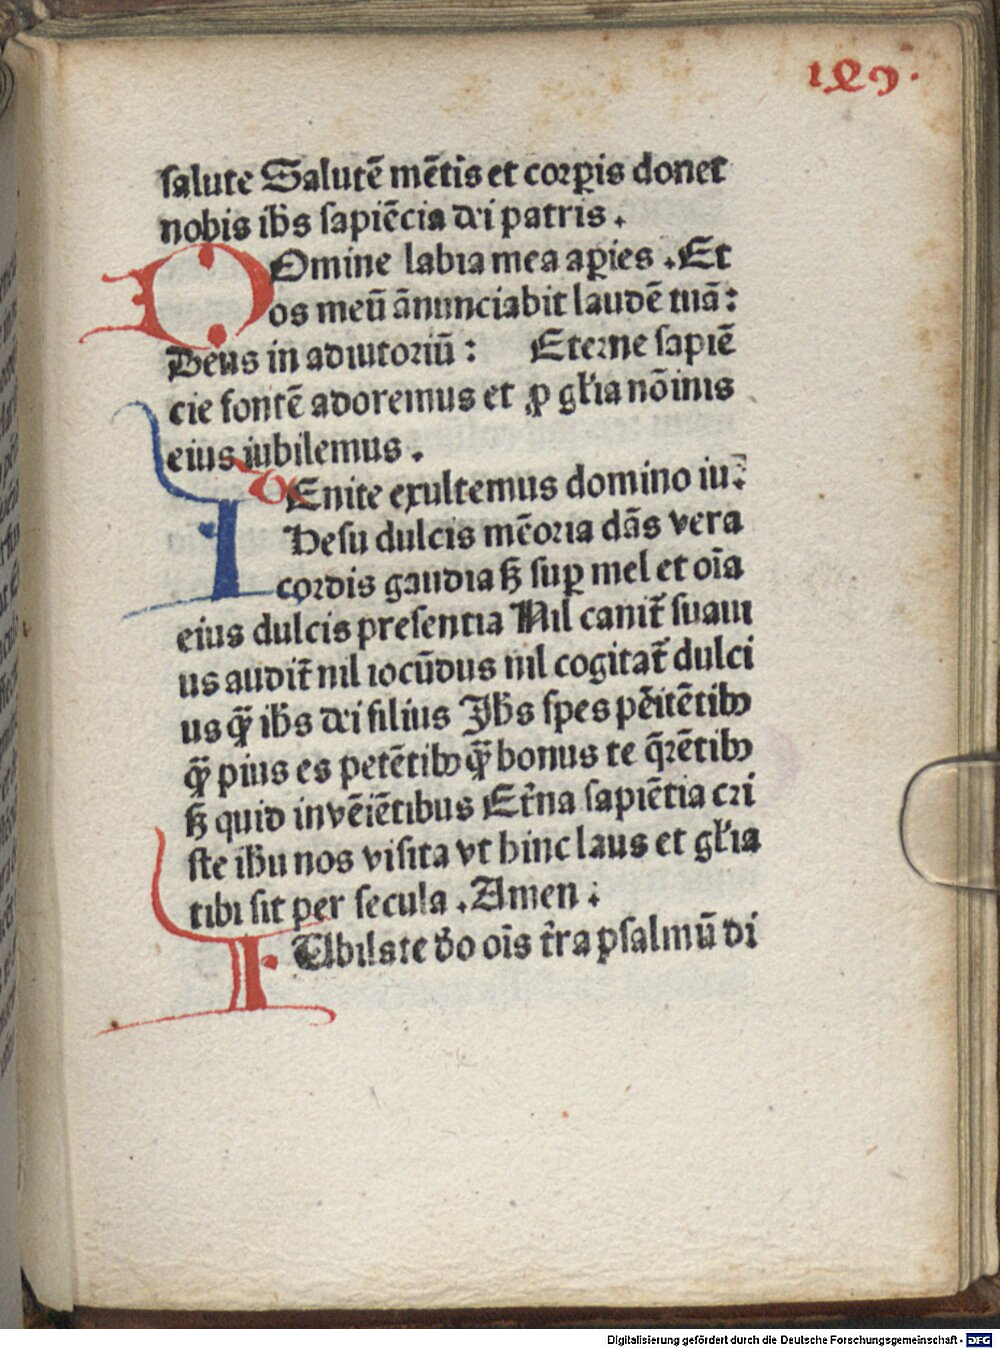 189.
salute Salutē mētis et corꝑis donet
nobis ihs̄ sapiēcia dei patris .
DOmine labia mea aꝑies . Et
os meū ānunciabit laudē tuā :
Deus in adiutoriū : Eterne sapiē
cie fontē adoremus et ꝓ gl'ia nōinis
eius iubilemus .
VEnite exultemus domino iu :
IHesu dulcis mēoria dās vera
cordis gaudia ꝫ suꝑ mel et oīa
eius dulcis presentia Nil canit̄ suaui
us audit̄ nil iocūdus nil cogitat̄ dulci
us q̄ ihs̄ dei filius Ihs̄ spes pēitētibꝫ
q̄ pius es petētibꝫ q̄ bonus te q̄rētibꝫ
ꝫ quid invēiētibus Et̄na sapiētia cri
ste ihū nos visita vt hinc laus et gl'ia
tibi sit per secula . Amen :
IUbilate dō oīs t̄ra psalmū di
Digitalisierung gefördert durch die Deutsche Forschungsgemeinschaft - DFG